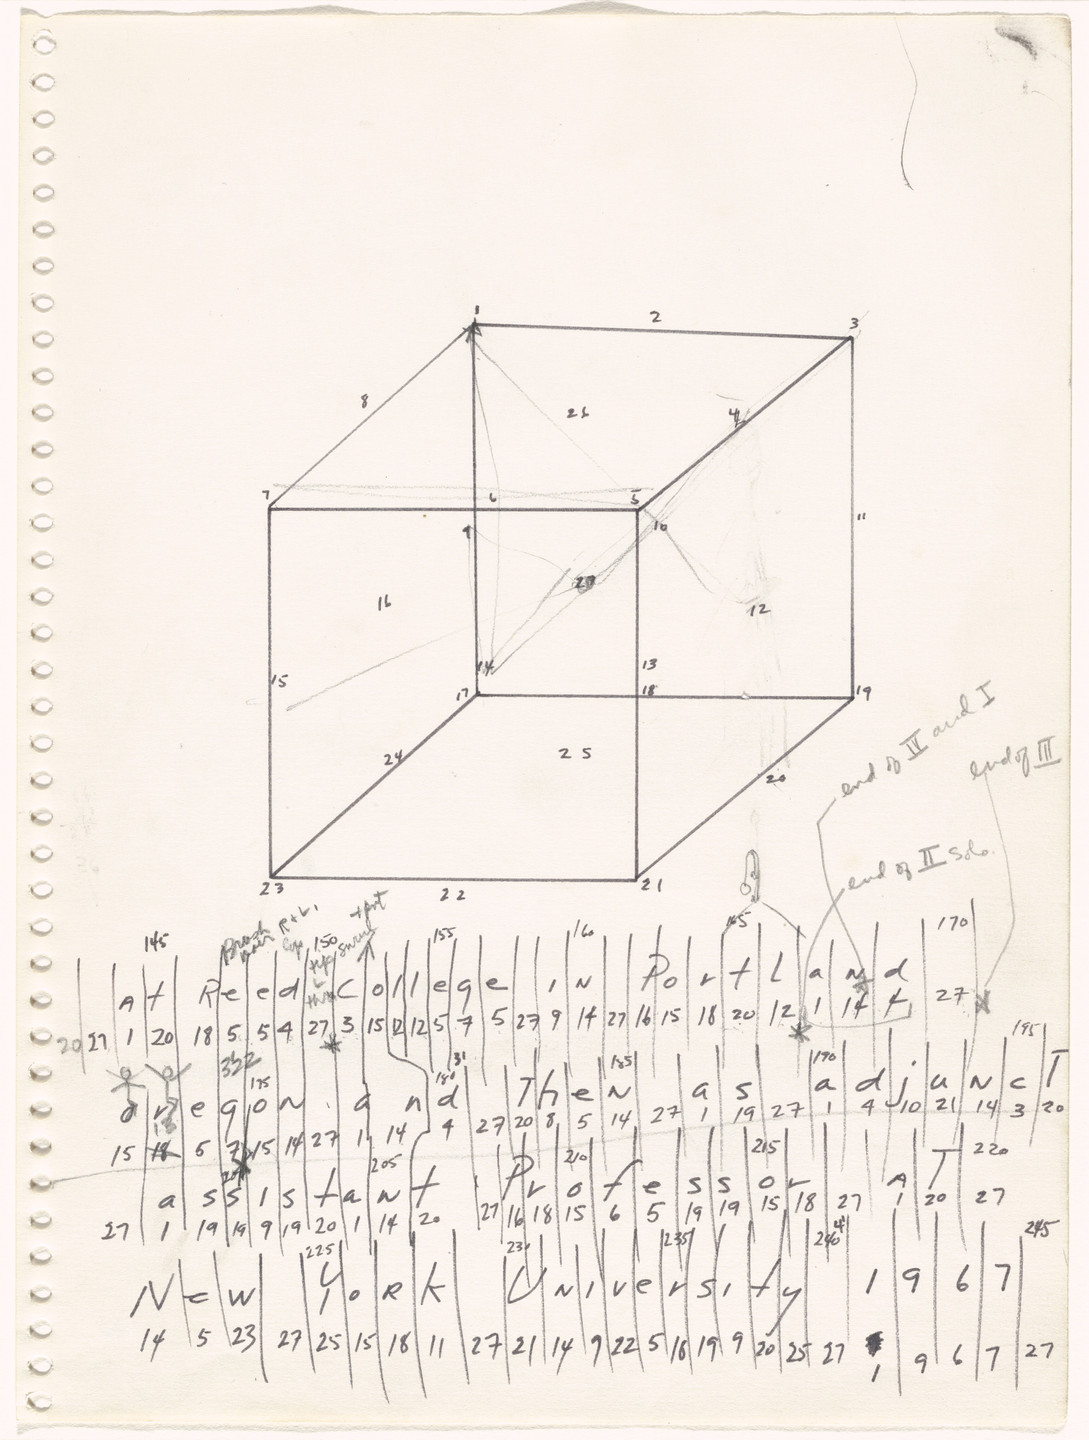 1
2
3
8
26
4
7
6
5
9
10
11
27
16
12
14
15
13
17
18
19
24
25
20
23
22
21
end of IV and I
end of III
end of II solo.
145 150 155 160 165 170
At Reed College in Portland
20 27 1 20 18 5 5 4 27 3 15 12 12 5 7 5 27 9 14 27 16 15 18 20 12 1 14 4 27
322
175 180 185 190 195
oregon and Then as adjuncT
15 18 5 7 15 14 27 1 14 4 27 20 8 5 14 27 1 19 27 1 4 10 21 14 3 20
205 210 215 220
assistant Professor AT
27 1 19 19 9 19 20 1 14 20 27 16 18 15 6 5 19 19 15 18 27 1 20 27
225 230 235 245
New York University 1967
14 5 23 27 25 15 18 11 27 21 14 9 22 5 18 19 9 20 25 27 1 9 6 7 27